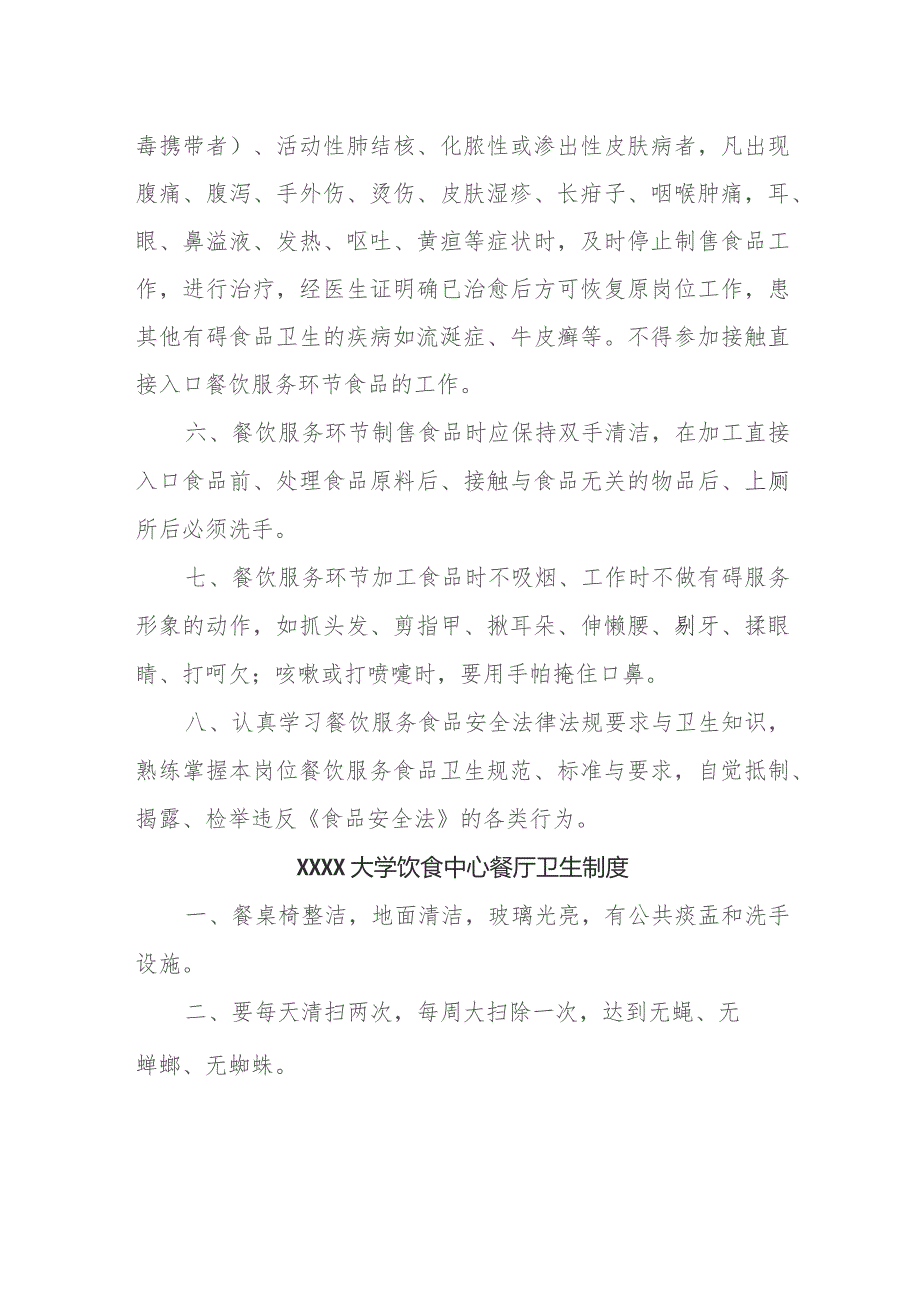 毒携带者）、活动性肺结核、化脓性或渗出性皮肤病者，凡出现
腹痛、腹泻、手外伤、烫伤、皮肤湿疹、长疳子、咽喉肿痛，耳、
眼、鼻溢液、发热、呕吐、黄疸等症状时，及时停止制售食品工
作，进行治疗，经医生证明确已治愈后方可恢复原岗位工作，患
其他有碍食品卫生的疾病如流涎症、牛皮癣等。不得参加接触直
接入口餐饮服务环节食品的工作。
六、餐饮服务环节制售食品时应保持双手清洁，在加工直接
入口食品前、处理食品原料后、接触与食品无关的物品后、上厕
所后必须洗手。
七、餐饮服务环节加工食品时不吸烟、工作时不做有碍服务
形象的动作，如抓头发、剪指甲、揪耳朵、伸懒腰、剔牙、揉眼
睛、打呵欠；咳嗽或打喷嚏时，要用手帕掩住口鼻。
八、认真学习餐饮服务食品安全法律法规要求与卫生知识，
熟练掌握本岗位餐饮服务食品卫生规范、标准与要求，自觉抵制、
揭露、检举违反《食品安全法》的各类行为。
XXXX 大学饮食中心餐厅卫生制度
一、餐桌椅整洁，地面清洁，玻璃光亮，有公共痰盂和洗手
设施。
二、要每天清扫两次，每周大扫除一次，达到无蝇、无
蝉螂、无蜘蛛。